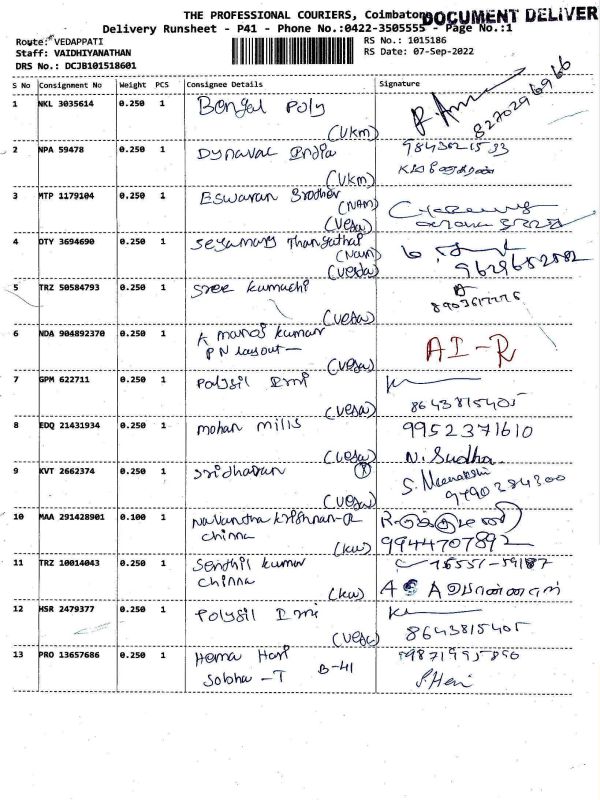 THE PROFESSIONAL COURIERS, Coimbatore
DOCUMENT DELIVER
Delivery Runsheet - P41 - Phone No.:0422-3505555 - Page No.:1
Route: VEDAPPATI
RS No.: 1015186
Staff: VAIDHIYANATHAN
RS Date: 07-Sep-2022
DRS No.: DCJB101518601
S No Consignment No Weight PCS Consignee Details Signature
1 NKL 3035614 0.250 1 Bengal Poly
8270296966
(Vkm)
2 NPA 59478 0.250 1 Dynaval India
(Vkm)
3 MTP 1179104 0.250 1 Eswaran Brother
(NAM)
(Veda)
4 DTY 3694690 0.250 1 Seyamary Thangathai
(Nam)
(Veda) 9629682582
5 TRZ 50584793 0.250 1 Sree Kumachi
(Veda)
6 NDA 904892370 0.250 1 K manoj kumar
PN layout AI-R
(Veda)
7 GPM 622711 0.250 1 Polysil Irri
(Veda) 8643815405
8 EDQ 21431934 0.250 1 mohan mills 9952371610
(Veda) N. Sudha
9 KVT 2662374 0.250 1 Sridharan S. Meenakshi
(Veda)
10 MAA 291428901 0.100 1
chinna
(kw) 9944707892
11 TRZ 10014043 0.250 1 Senthil kumar
chinna
(kw)
12 HSR 2479377 0.250 1 Polysil Irri
(Veda) 8643815405
13 PRO 13657686 0.250 1 Hema Hari
Sobha -T B-41 S.Hari